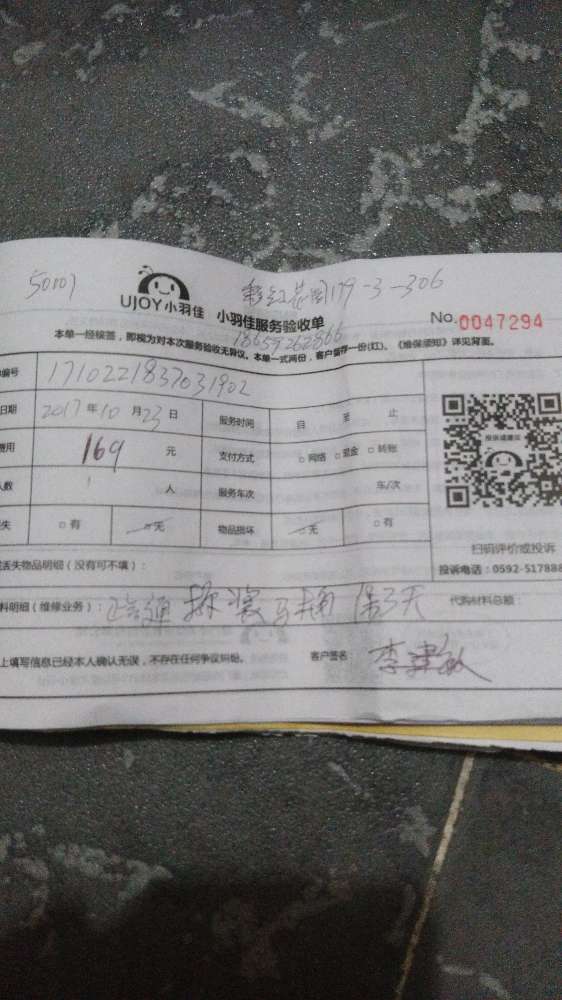 50107
彩虹花园179-3-306
UJOY小羽佳 小羽佳服务验收单 No.0047294
18659262866
本单一经核签，即视为对本次服务验收无异议。本单一式两份，客户留存一份(红)。《维保须知》详见背面。
编号 1710221837031902
日期 2017年10月23日 服务时间 自 至 止
费用 169 元 支付方式 □网络 □现金 □转账
人数 1 人 服务车次 车/次
失 □有 □无 物品损坏 □无 □有
投诉或建议
扫码评价或投诉
丢失物品明细（没有可不填）： 投诉电话：0592-517888
料明细（维修业务）： 疏通 拆装马桶 保3天 代购材料总额：
上填写信息已经本人确认无误，不存在任何争议纠纷。 客户签名：